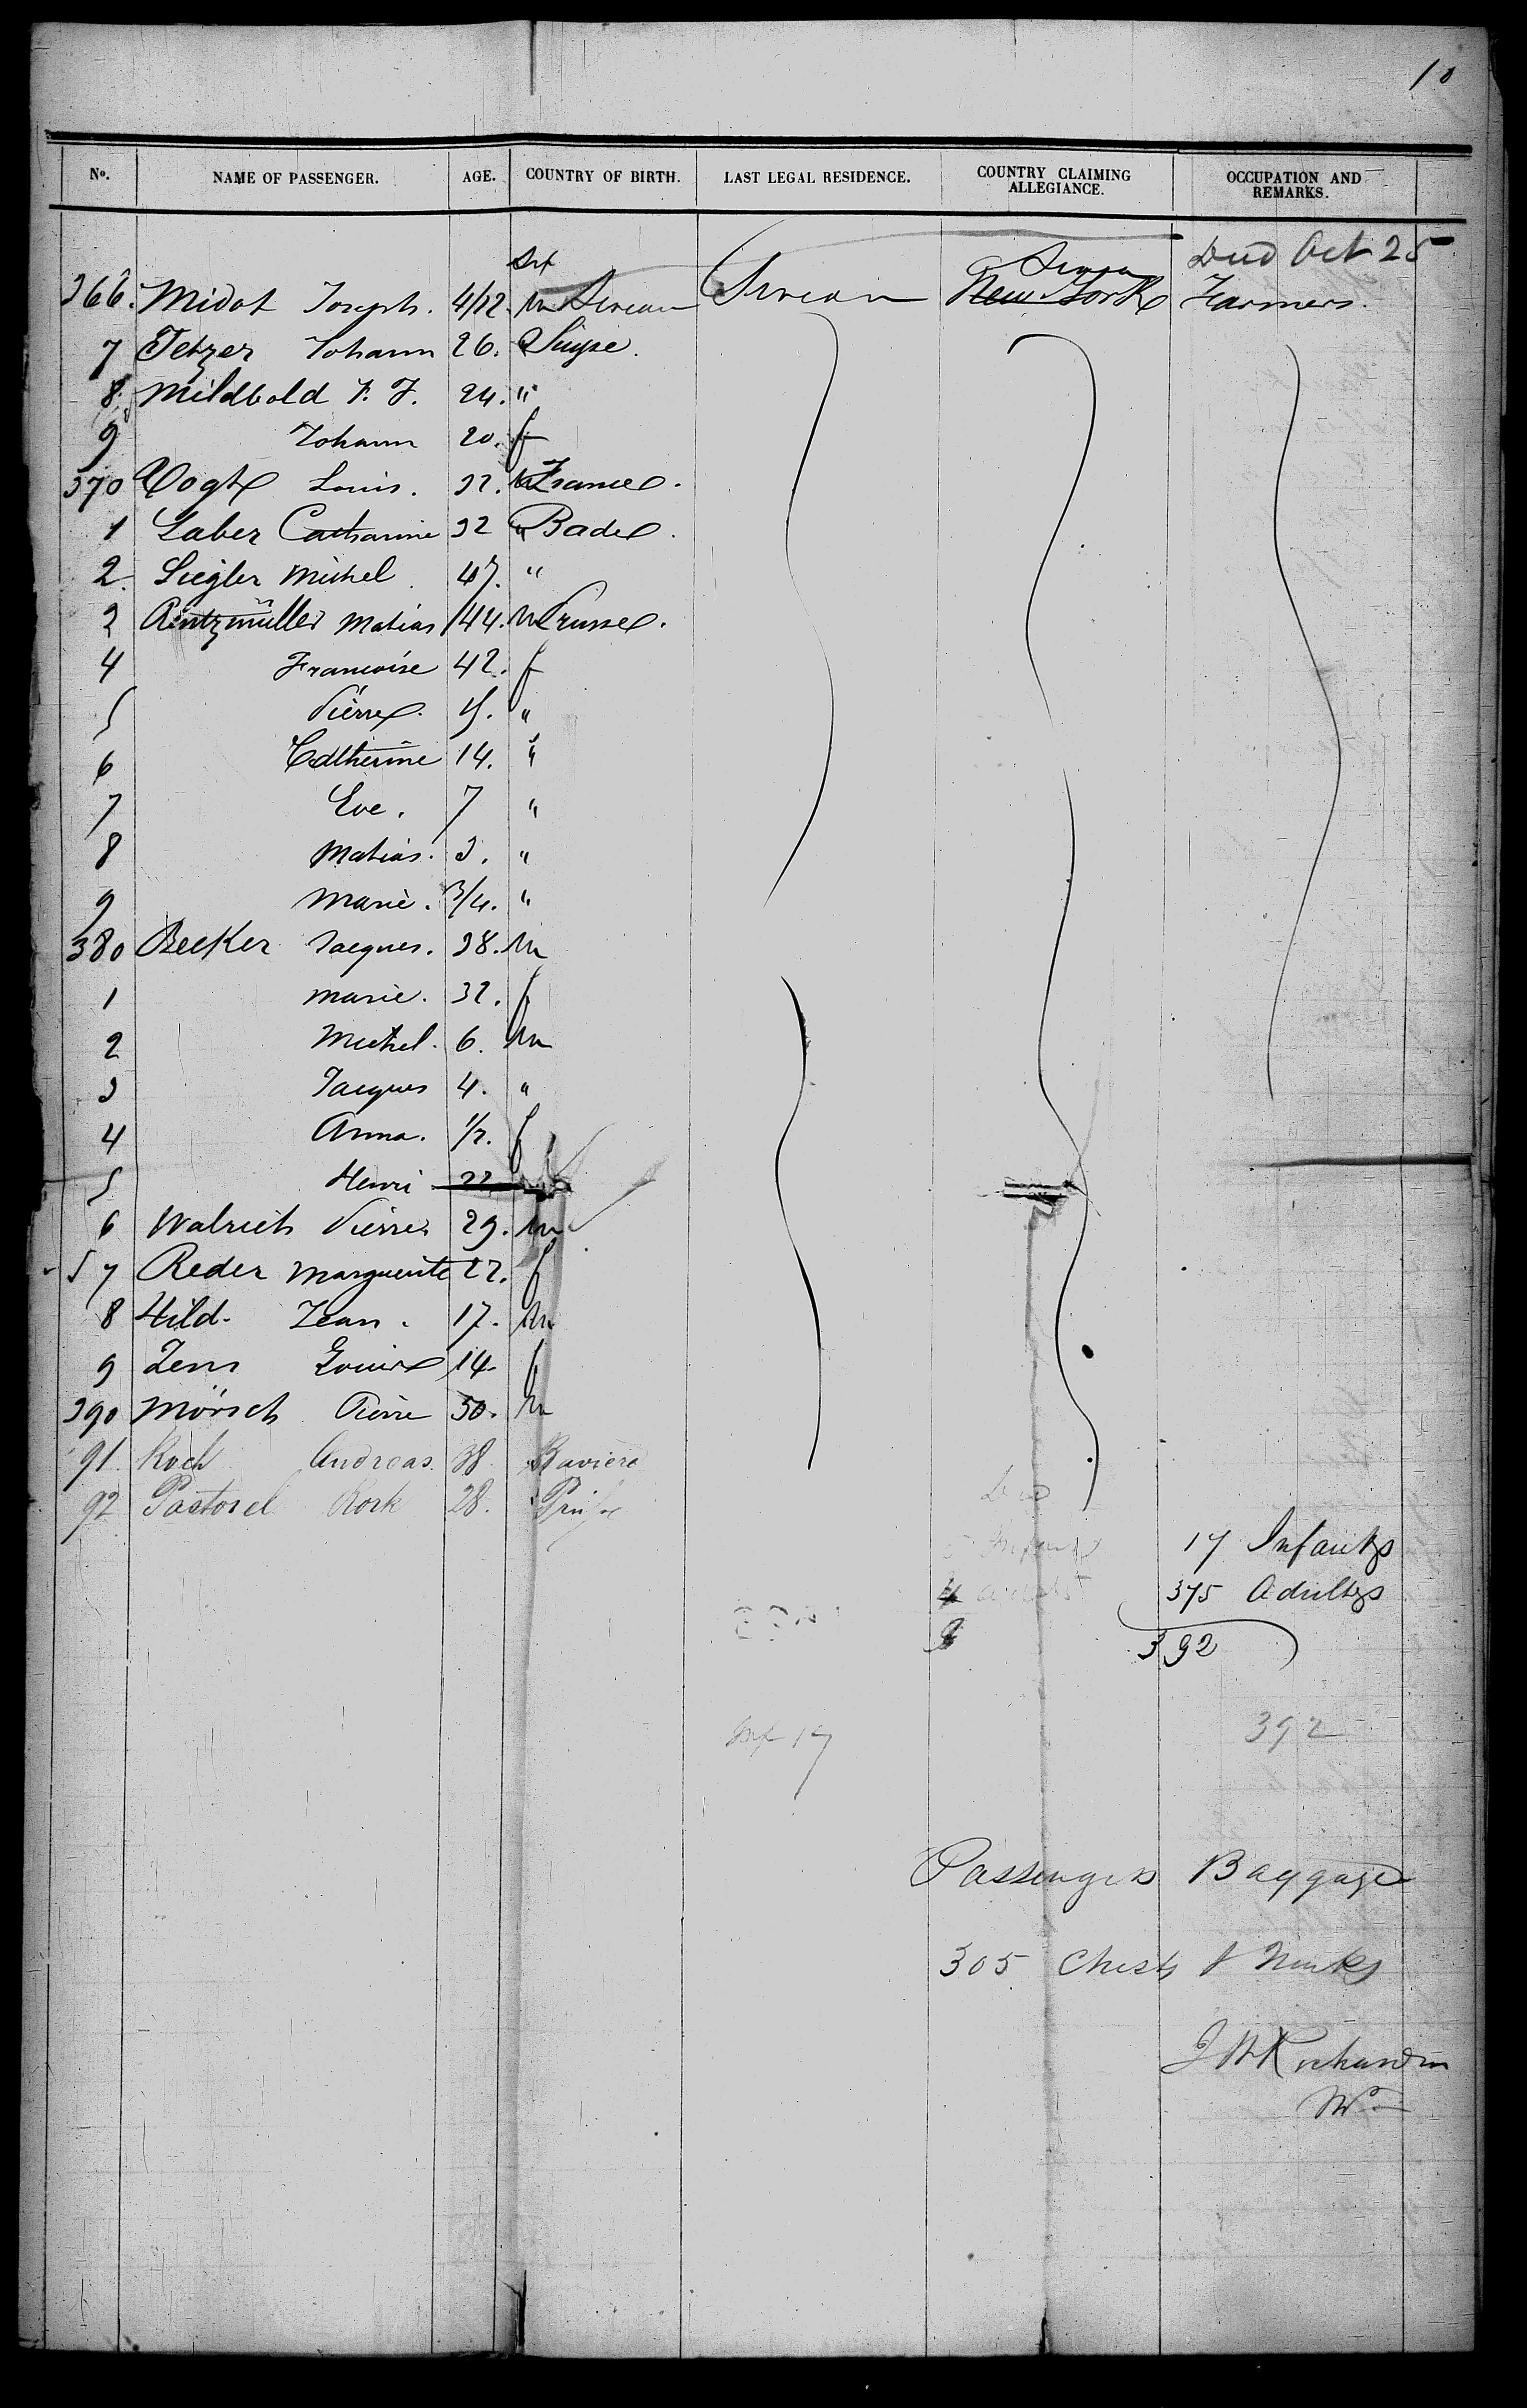 10
No. NAME OF PASSENGER. AGE. COUNTRY OF BIRTH. LAST LEGAL RESIDENCE. COUNTRY CLAIMING ALLEGIANCE. OCCUPATION AND REMARKS.
Died Oct 25
366. Midot Joseph. 4/12. m New York Farmers.
7 Tetzer Johann 26. Suisse.
8 Mildbold F. J. 24. "
9 Johann 20. f
370 Vogt Louis. 32. France.
1 Laber Catharine 32 " Bade.
2. Siegler Michel 47. "
3 Rintzmüller Matias 44. m Prusse.
4 Francoise 42. f
5 Pierre. 15. "
6 Catherine 14. "
7 Eve. 7 "
8 Matias. 3. "
9 Marie. 3/4. "
380 Becker Jacques. 38. m
1 Marie. 32. f
2 Michel. 6. m
3 Jacques 4. "
4 Anna. 1/2. f
5 Henri 22
6 Walrich Pierre 29. m
7 Reder Marguerite 22. f
8 Hild. Jean. 17. m
9 Zens Louise 14. f
390 Mörsch Pierre 50. m
91. Koch Andreas. 38. Baviere
92 Pastorel Rock 28.
17 Infants
375 Adults
392
392
Inf 17
Passengers Baggage
305 Chests & Trunks
J H Richardson